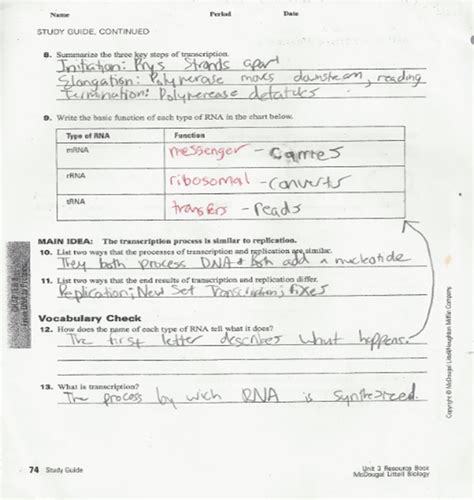 Name Period Date
STUDY GUIDE, CONTINUED
8. Summarize the three key steps of transcription.
Initiation: Prys Strands apart
Elongation: Polymerase moves downsteam, reading
Termination: Polymerease detatches
9. Write the basic function of each type of RNA in the chart below.
Type of RNA Function
mRNA messenger - Carries
rRNA ribosomal - converts
tRNA transfers - reads
MAIN IDEA: The transcription process is similar to replication.
10. List two ways that the processes of transcription and replication are similar.
They both process DNA & Both add a nucleotide
11. List two ways that the end results of transcription and replication differ.
Replication; New Set Transcription; fixes
Vocabulary Check
12. How does the name of each type of RNA tell what it does?
The first letter describes what happens.
13. What is transcription?
The process by wich RNA is synthesized.
74 Study Guide
Unit 3 Resource Book
McDougal Littell Biology
Copyright © McDougal Littell/Houghton Mifflin Company